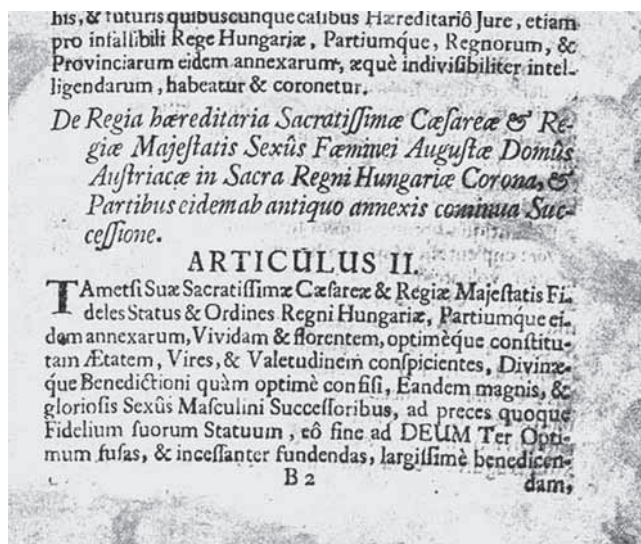 his, & futuris quibuscunque casibus Hæreditariô Jure, etiam
pro infallibili Rege Hungariæ, Partiumque, Regnorum, &
Provinciarum eidem annexarum, æquè indivisibiliter intel-
ligendarum, habeatur & coronetur.
De Regia hæreditaria Sacratissimæ Cæsareæ & Re-
giæ Majestatis Sexûs Fæminei Augustæ Domûs
Austriacæ in Sacra Regni Hungariæ Corona, &
Partibus eidem ab antiquo annexis continua Suc-
cessione.
ARTICULUS II.
TAmetsi Suæ Sacratissimæ Cæsareæ & Regiæ Majestatis Fi-
deles Status & Ordines Regni Hungariæ, Partiumque ei-
dem annexarum, Vividam & florentem, optimèque constitu-
tam Ætatem, Vires, & Valetudinem conspicientes, Divinæ-
que Benedictioni quàm optimè confisi, Eandem magnis, &
gloriosis Sexûs Masculini Successoribus, ad preces quoque
Fidelium suorum Statuum, eô fine ad DEUM Ter Opti-
mum fusas, & incessanter fundendas, largissimè benedicen-
B 2 dam,